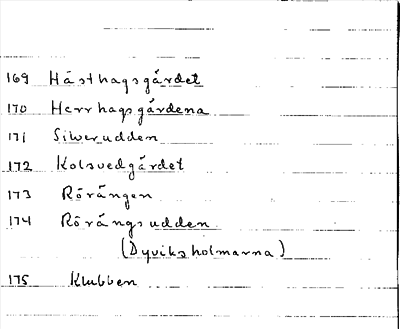 169 Hästhagsgårdet
170 Herrhagsgårdena
171 Silverudden
172 Kolsvedgårdet
173 Rörängen
174 Rörängsudden
(Dyviksholmarna)
175 Klubben